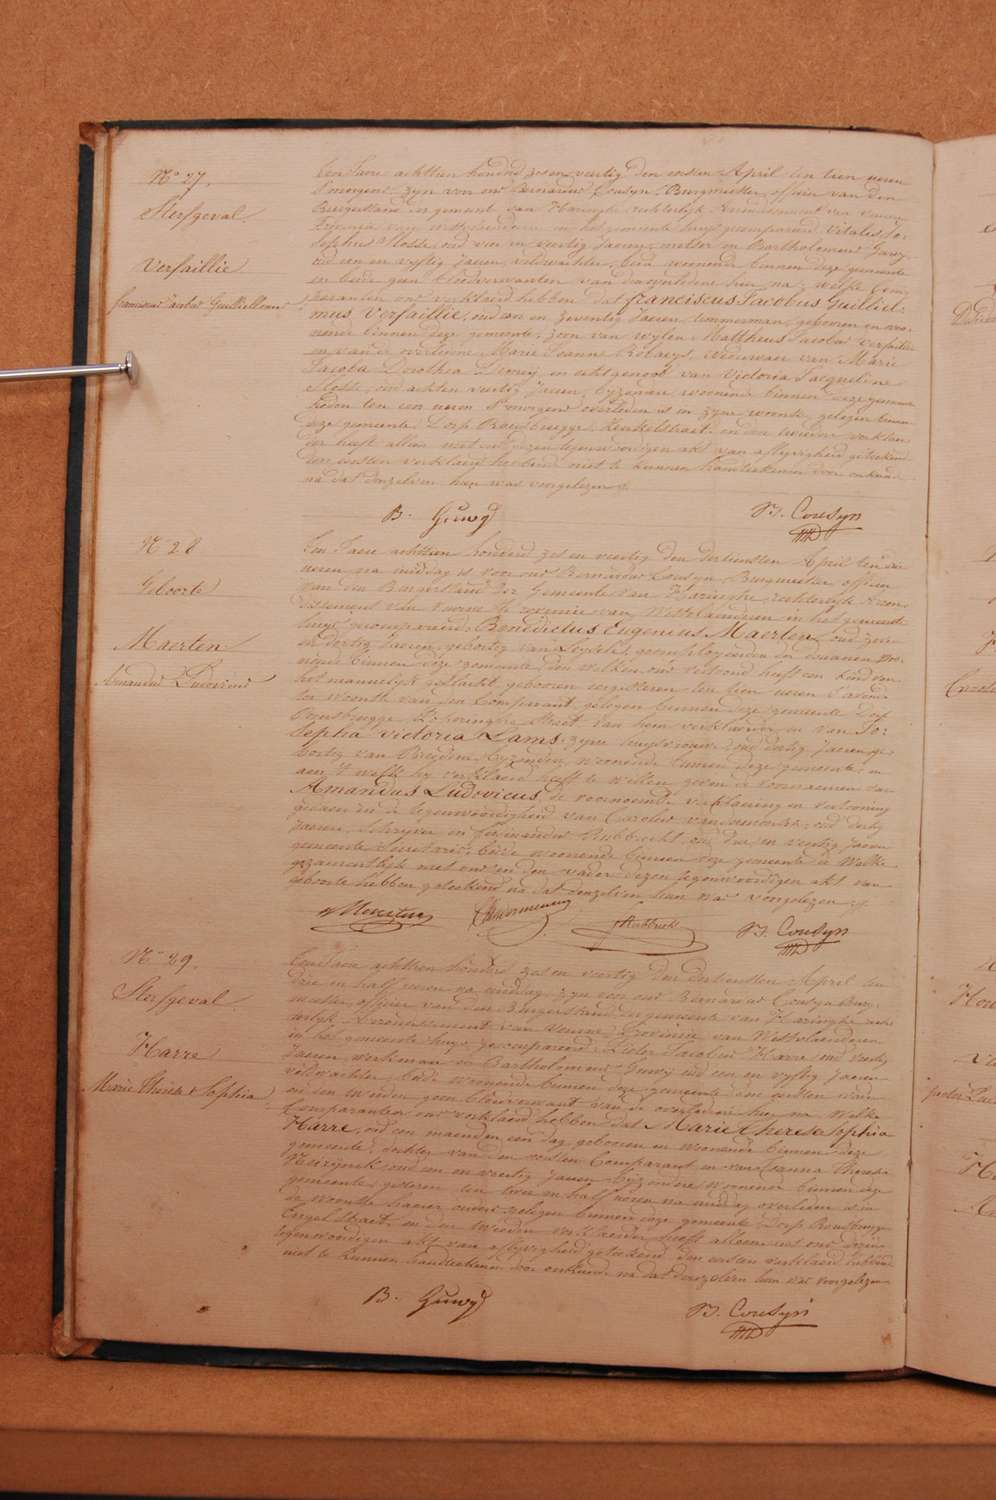 N° 27.
Sterfgeval
Verfaillie
franciscus Jacobus Guillielmus
Een Jaere achttien honderd zes en veertig den eersten April ten tien uren
S'morgens zyn voor ons Bernardus Cousyn, Burgmeester, officier van den
Burgerstand der gemeente van Haringhe, rechterlyk Arrondissement van Veurne
Provincie van Westvlaenderen in het gemeente huys gecompareerd Vitalis Jo-
sephus Flosse, oud vier en veertig Jaeren, metser en Bartholomeus Guwy
oud een en vyftig Jaeren, veldwachter, beide woonende binnen deze gemeente
en beide geen bloedverwanten van den overledene hier na; welke Com-
paranten ons verklaerd hebben dat franciscus Jacobus Guilliel-
mus Verfaillie, oud en zeventig Jaeren timmerman, gebooren en woo-
nende binnen deze gemeente, zoon van wylen Mattheus Jacobus Verfaillie
en van de overledene Marie Jeanne Robaeys, weduwaer van Marie
Jacoba Dorothea en echtgenoot van Victoria Jacqueline
Flosse, oud acht en veertig Jaeren, byzondere woonende binnen deze gemeente
heden ten een uren S'morgens overleden is in zyne woonste gelegen binnen
deze gemeente, Dorp Rousbrugge, straet. en den tweeden verklaer-
der heeft alleen met ons dezen tegenwoordigen akt van aflyvigheid geteekend
den eersten verklaerd hebbende niet te kunnen handteekenen door onkunde
na dat denzelven hun was voorgelezen
B. Guwy B. Cousyn
N° 28
Geboorte
Maerten
Amandus Ludovicus
Een Jaere achttien honderd zes en veertig den dertiensten April ten drie
uren na middag is voor ons Bernardus Cousyn Burgmeester officier
van den Burgerstand der Gemeente van Haringhe, rechterlyk Arron-
dissement van Veurne Provincie van Westvlaenderen in het gemeente
huys gecompareerd: Benedictus Eugenius Maerten, oud zeven
en dertig Jaeren, geboortig van geemployeerden der douanen woo-
nende binnen deze gemeente den welken ons vertoond heeft een kind van
het mannelyk geslacht gebooren eergisteren ten tien uren S'avonds
ter woonste van den Comparant gelegen binnen deze gemeente Dorp
Rousbrugge Straet van hem verklaerder en van Jo-
sepha Victoria Lams, zyne huysvrouwe, oud dertig Jaeren ge-
boortig van Bredene, byzondere, woonende binnen deze gemeente, en
aen 't welk hy verklaerd heeft te willen geven de voornaemen van
Amandus Ludovicus, de voornoemde verklaering en vertooning
gedaen in de tegenwoordigheid van Carolus oud dertig
Jaeren, Schryver en ferdinandus Rubbrecht, oud drie en veertig Jaeren
gemeente Secretaris, beide woonende binnen deze gemeente de Welke
gezamentlyk met ons en den vader dezen tegenwoordigen akt van
geboorte hebben geteekend na dat denzelven hun was voorgelezen
Maerten Rubbrecht B. Cousyn
N° 29.
Sterfgeval
Harre
Marie Therese Sophia
Een Jaere achttien honderd zes en veertig den dertiensten April ten
drie en half uren na middag zyn voor ons Bernardus Cousyn Burg-
meester, officier van den Burgerstand der gemeente van Haringhe rech-
terlyk Arrondissement van Veurne, Provincie van Westvlaenderen
in het gemeente huys gecompareerd: Pieter Jacobus Harre oud veertig
Jaeren, werkman en Bartholomeus Guwy oud een en vyftig Jaeren
veldwachter, beide woonende binnen deze gemeente den eersten vader
en den tweeden geen bloedverwant van de overledene hier na welke
Comparanten ons verklaerd hebben dat Marie Therese Sophia
Harre, oud een maend en een dag gebooren en woonende binnen deze
gemeente, dochter van den eersten Comparant en van Joanna Theresa
Neirynck oud een en veertig Jaeren byzondere woonende binnen deze
gemeente, gisteren ten twee en half uren na middag overleden is in
de woonste haerer ouders gelegen binnen deze gemeente Dorp Rousbrugge
Engel straet en den tweeden verklaerder heeft alleen met ons dezen
tegenwoordigen akt van aflyvigheid geteekend den eersten verklaerd hebbende
niet te kunnen handteekenen door onkunde na dat denzelven hun was voorgelezen
B. Guwy B. Cousyn